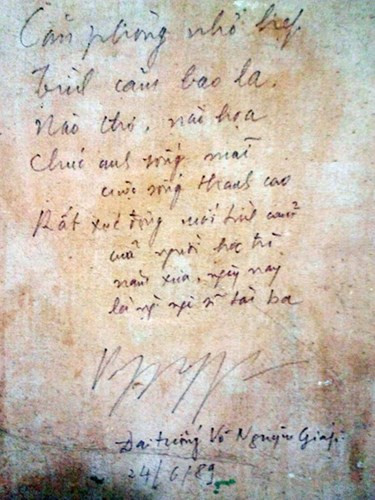 Căn phòng nhỏ hẹp
Tình cảm bao la.
Nào thơ, nào họa
Chúc anh sống mãi
cuộc sống thanh cao
Rất xúc động mối tình cảm
của người học trò
năm xưa, ngày nay
là nghệ sĩ tài ba
Đại tướng Võ Nguyên Giáp.
24/6/89